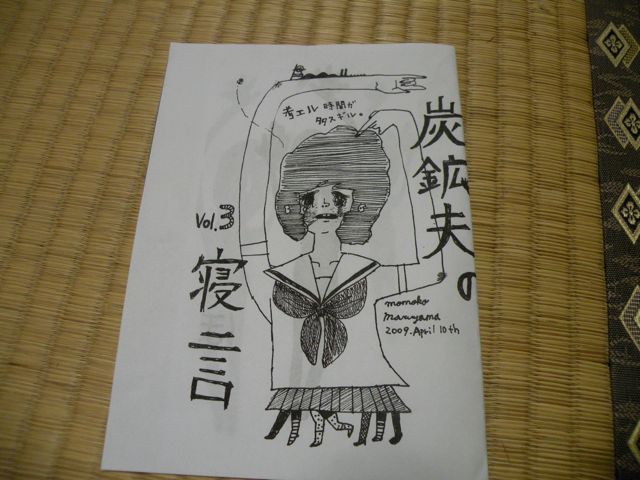 考エル 時間が
多スギル。
炭鉱夫の
Vol.3
寝言
momoko
maruyama
2009.April 10th